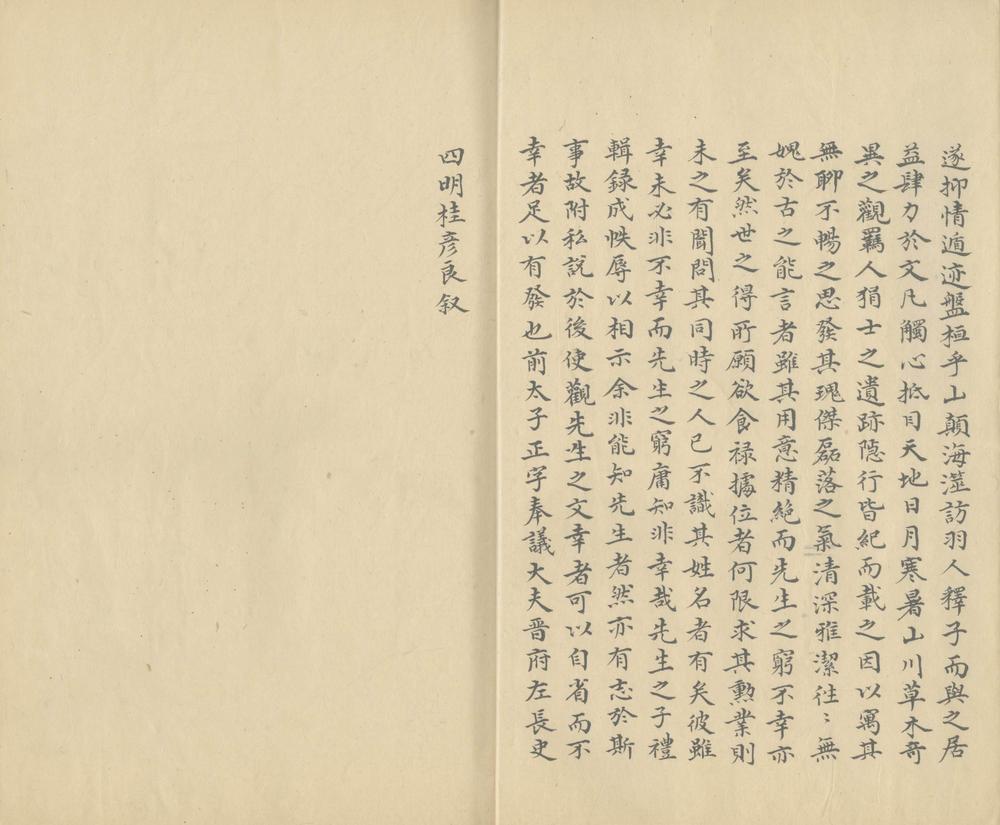 遂抑情遁迹盤桓乎山顛海澨訪羽人釋子而與之居
益肆力於文凡觸心抵目天地日月寒暑山川草木奇
異之觀羈人狷士之遺跡隠行皆紀而載之因以寓其
無聊不暢之思發其瑰傑磊落之氣清深雅潔徃〻無
媿於古之能言者雖其用意精絶而先生之窮不幸亦
至矣然世之得所願欲食禄據位者何限求其勲業則
未之有聞問其同時之人已不識其姓名者有矣彼雖
幸未必非不幸而先生之窮庸知非幸哉先生之子禮
輯録成帙辱以相示余非能知先生者然亦有志於斯
事故附私説於後使觀先生之文幸者可以自省而不
幸者足以有發也前太子正字奉議大夫晋府左長史
四明桂彦良叙